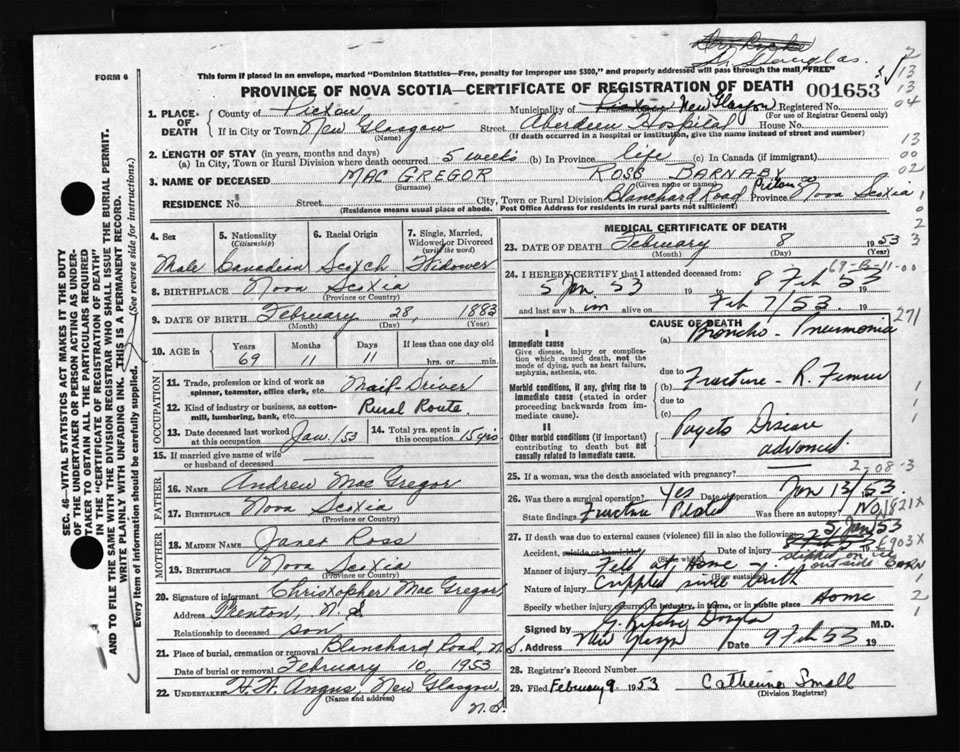 Dr. Douglas.
FORM 6
This form if placed in an envelope, marked "Dominion Statistics—Free, penalty for improper use $300," and properly addressed will pass through the mail "FREE"
PROVINCE OF NOVA SCOTIA—CERTIFICATE OF REGISTRATION OF DEATH 001653
1. PLACE OF DEATH County of Pictou Municipality of Pictou New Glasgow Registered No.
(For use of Registrar General only)
If in City or Town New Glasgow Street Aberdeen Hospital House No.
(Name) (If death occurred in a hospital or institution, give the name instead of street and number)
2. LENGTH OF STAY (in years, months and days)
(a) In City, Town or Rural Division where death occurred 5 weeks (b) In Province life (c) In Canada (if immigrant)
3. NAME OF DECEASED MAC GREGOR ROSS BARNABY
(Surname) (Given name or names)
RESIDENCE No. Street City, Town or Rural Division Blanchard Road Pictou Co Province Nova Scotia
(Residence means usual place of abode. Post Office Address for residents in rural parts not sufficient)
4. Sex 5. Nationality (Citizenship) 6. Racial Origin 7. Single, Married, Widowed or Divorced (write the word)
Male Canadian Scotch Widower
8. BIRTHPLACE Nova Scotia
(Province or Country)
9. DATE OF BIRTH February 28, 1883
(Month) (Day) (Year)
10. AGE in Years Months Days If less than one day old
69 11 11 hrs. or min.
OCCUPATION
11. Trade, profession or kind of work as spinner, teamster, office clerk, etc. Mail Driver
12. Kind of industry or business, as cotton-mill, lumbering, bank, etc. Rural Route
13. Date deceased last worked at this occupation Jan./53 14. Total years spent in this occupation 15 yrs
15. If married give name of wife or husband of deceased
FATHER
16. NAME Andrew Mac Gregor
17. BIRTHPLACE Nova Scotia
(Province or Country)
MOTHER
18. MAIDEN NAME Janet Ross
19. BIRTHPLACE Nova Scotia
(Province or Country)
20. Signature of informant Christopher Mac Gregor
Address Trenton, N.S
Relationship to deceased son
21. Place of burial, cremation or removal Blanchard Road, N.S.
Date of burial or removal February 10, 1953
22. UNDERTAKER H.W. Angus, New Glasgow, N.S.
(Name and address)
MEDICAL CERTIFICATE OF DEATH
23. DATE OF DEATH February 8 1953
(Month) (Day) (Year)
69-B-11-00
24. I HEREBY CERTIFY that I attended deceased from:
5 Jan 53 19 to 8 Feb 53 19
and last saw h im alive on Feb 7/53. 19
CAUSE OF DEATH
I
Immediate cause (a) Broncho-Pneumonia
Give disease, injury or complication which caused death, not the mode of dying, such as heart failure, asphyxia, asthenia, etc.
due to
Morbid conditions, if any, giving rise to immediate cause (stated in order proceeding backwards from immediate cause). (b) Fracture - R. Femur
due to
(c)
II
Other morbid conditions (if important) contributing to death but not causally related to immediate cause. Pagets Disease
advanced
25. If a woman, was the death associated with pregnancy?
2-08-3
26. Was there a surgical operation? Yes Date of operation Jan 13/53.
State findings Fracture Plated Was there an autopsy? No
N821X
27. If death was due to external causes (violence) fill in also the following: 5 Jan/53
E903X
Accident, suicide or homicide? (State which) Date of injury 19
slipped on ice
Manner of injury Fell at Home - outside BARN
(How sustained)
Nature of injury Crippled since birth
Specify whether injury occurred in industry, in home, or in public place Home
Signed by Douglas M.D.
Address New Glasgow Date 9 Feb 53 19
28. Registrar's Record Number
29. Filed February 9 1953 Catherine Small
(Division Registrar)
SEC. 46—VITAL STATISTICS ACT MAKES IT THE DUTY OF THE UNDERTAKER OR PERSON ACTING AS UNDERTAKER TO OBTAIN ALL THE PARTICULARS REQUIRED IN THE "CERTIFICATE OF REGISTRATION OF DEATH" AND TO FILE THE SAME WITH THE DIVISION REGISTRAR WHO SHALL ISSUE THE BURIAL PERMIT.
WRITE PLAINLY WITH UNFADING INK. THIS IS A PERMANENT RECORD.
Every item of information should be carefully supplied. (See reverse side for instructions.)
13
13
04
13
00
02
1
0
2
2
3
271
1
1
1
1
2
1